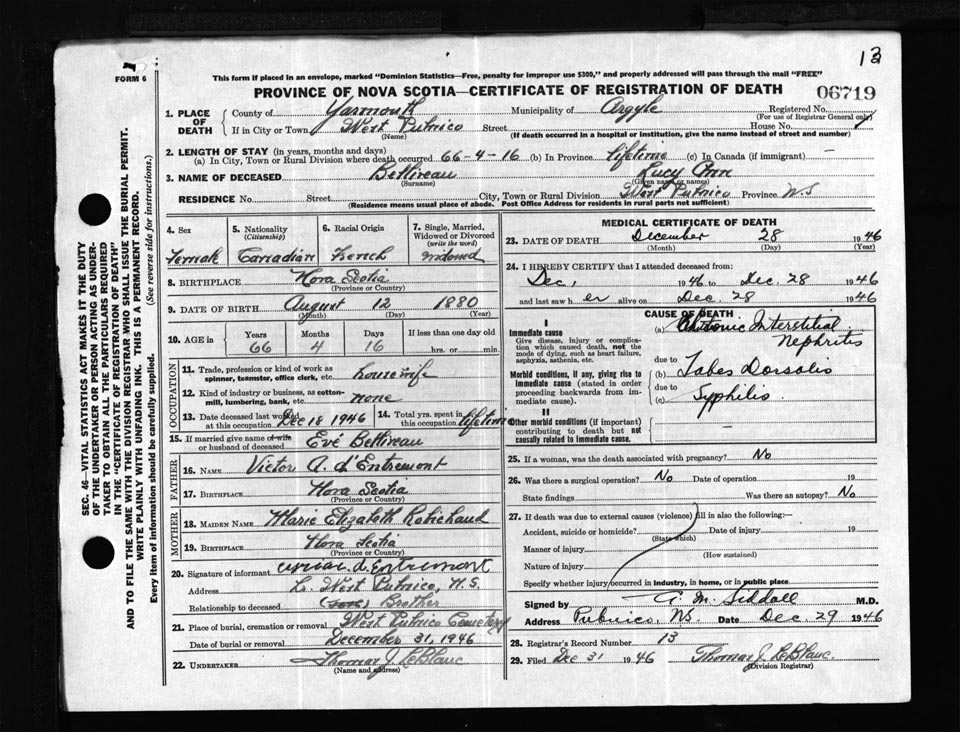 13
FORM 6
This form if placed in an envelope, marked "Dominion Statistics—Free, penalty for improper use $300," and properly addressed will pass through the mail "FREE"
PROVINCE OF NOVA SCOTIA—CERTIFICATE OF REGISTRATION OF DEATH
06719
1. PLACE OF DEATH
County of Yarmouth Municipality of Argyle Registered No.
(For use of Registrar General only)
If in City or Town West Pubnico Street House No.
(Name) (If death occurred in a hospital or institution, give the name instead of street and number)
2. LENGTH OF STAY (in years, months and days)
(a) In City, Town or Rural Division where death occurred 66-4-16 (b) In Province lifetime (c) In Canada (if immigrant) —
3. NAME OF DECEASED Bellireau Lucy Ann
(Surname) (Given name or names)
RESIDENCE No. Street City, Town or Rural Division West Pubnico Province N.S
(Residence means usual place of abode. Post Office Address for residents in rural parts not sufficient)
4. Sex
Female
5. Nationality
(Citizenship)
Canadian
6. Racial Origin
French
7. Single, Married, Widowed or Divorced
(write the word)
widowed
8. BIRTHPLACE Nova Scotia
(Province or Country)
9. DATE OF BIRTH August 12 1880
(Month) (Day) (Year)
10. AGE in
Years Months Days If less than one day old
66 4 16 hrs. or min.
OCCUPATION
11. Trade, profession or kind of work as spinner, teamster, office clerk, etc. housewife
12. Kind of industry or business, as cotton-mill, lumbering, bank, etc. none
13. Date deceased last worked at this occupation Dec 18 1946
14. Total yrs. spent in this occupation lifetime
15. If married give name of wife or husband of deceased Evé Bellireau
FATHER
16. NAME Victor A. d'Entremont
17. BIRTHPLACE Nova Scotia
(Province or Country)
MOTHER
18. MAIDEN NAME Marie Elizabeth Robichaud
19. BIRTHPLACE Nova Scotia
(Province or Country)
20. Signature of informant Cyriac d'Entremont
Address Lr. West Pubnico, N.S.
Relationship to deceased Brother
21. Place of burial, cremation or removal West Pubnico Cemetery
Date of burial or removal December 31, 1946
22. UNDERTAKER Thomas J. LeBlanc
(Name and address)
MEDICAL CERTIFICATE OF DEATH
23. DATE OF DEATH December 28 1946
(Month) (Day) (Year)
24. I HEREBY CERTIFY that I attended deceased from:
Dec, 1946 to Dec. 28 1946
and last saw her alive on Dec. 28 1946
CAUSE OF DEATH
I
Immediate cause
Give disease, injury or complication which caused death, not the mode of dying, such as heart failure, asphyxia, asthenia, etc.
(a) Chronic Interstitial Nephritis
due to
Morbid conditions, if any, giving rise to immediate cause (stated in order proceeding backwards from immediate cause).
(b) Tabes Dorsalis
due to
(c) Syphilis
II
Other morbid conditions (if important) contributing to death but not causally related to immediate cause.
—
25. If a woman, was the death associated with pregnancy? No
26. Was there a surgical operation? No Date of operation 19
State findings Was there an autopsy? No
27. If death was due to external causes (violence) fill in also the following:
Accident, suicide or homicide? Date of injury 19
(State which)
Manner of injury
(How sustained)
Nature of injury
Specify whether injury occurred in industry, in home, or in public place
Signed by A. M. Siddall M.D.
Address Pubnico, N.S. Date Dec. 29 1946
28. Registrar's Record Number 13
29. Filed Dec 31 1946 Thomas J. LeBlanc.
(Division Registrar)
SEC. 46—VITAL STATISTICS ACT MAKES IT THE DUTY
OF THE UNDERTAKER OR PERSON ACTING AS UNDER-
TAKER TO OBTAIN ALL THE PARTICULARS REQUIRED
IN THE "CERTIFICATE OF REGISTRATION OF DEATH"
AND TO FILE THE SAME WITH THE DIVISION REGISTRAR WHO SHALL ISSUE THE BURIAL PERMIT.
WRITE PLAINLY WITH UNFADING INK. THIS IS A PERMANENT RECORD.
Every item of information should be carefully supplied. (See reverse side for instructions.)